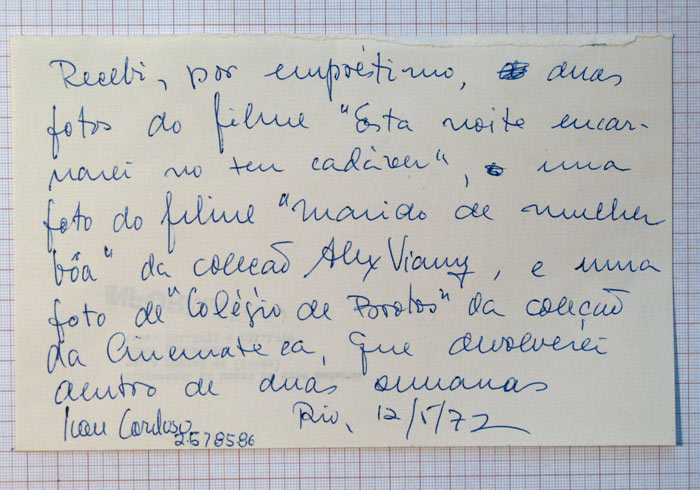 Recebi, por empréstimo, duas
fotos do filme "Esta noite encar-
narei no teu cadáver", uma
foto do filme "Marido de mulher
bôa" da coleção Alex Viany, e uma
foto de "Colégio de Brotos" da coleção
da Cinemateca, que devolverei
dentro de duas semanas
Ivan Cardoso Rio, 12/5/72
2578586